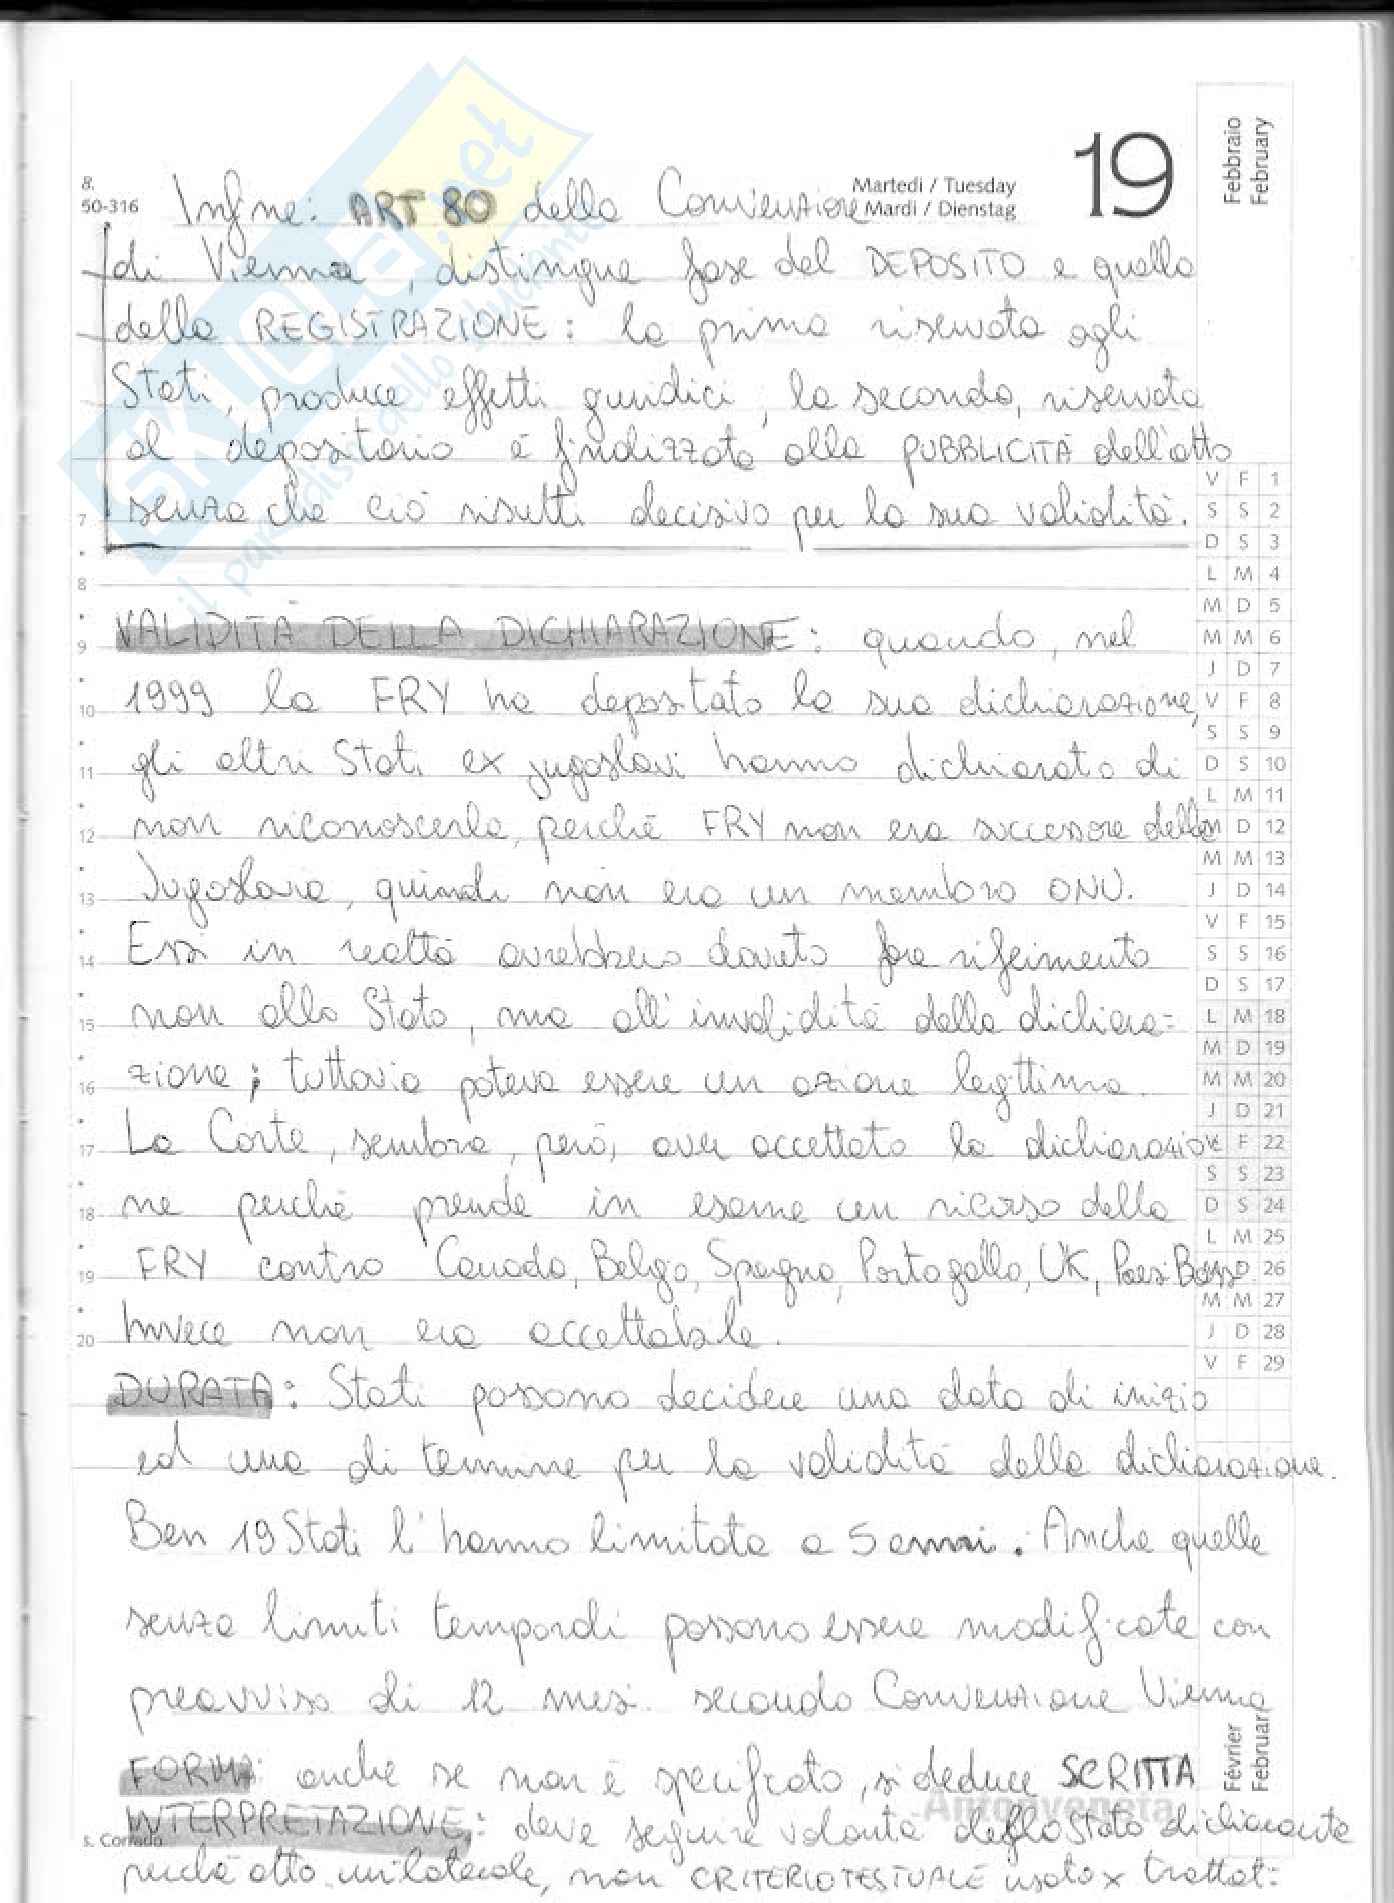 Febbraio
February
19
Martedì / Tuesday
Mardi / Dienstag
8.
50-316
Infine: ART 80 della Convenzione
di Vienna, distingue fase del DEPOSITO e quella
della REGISTRAZIONE: la prima riservata agli
Stati, produce effetti giuridici, la seconda, riservata
al depositario è findizzata alla PUBBLICITÀ dell'atto
7 senza che ciò risulti decisivo per la sua validità.
8
9 VALIDITÀ DELLA DICHIARAZIONE: quando, nel
10 1999 la FRY ha depositato la sua dichiarazione,
11 gli altri Stati ex jugoslavi hanno dichiarato di
12 non riconoscerla, perché FRY non era successore della
13 Jugoslavia, quindi non era un membro ONU.
14 Essi in realtà avrebbero dovuto fare riferimento
15 non allo Stato, ma all'invalidità della dichiara=
16 zione; tuttavia poteva essere un azione legittima.
17 La Corte, sembra, però, aver accettato la dichiarazio
18 ne perché prende in esame un ricorso della
19 FRY contro Canada, Belgio, Spagna, Portogallo, UK, Paesi Bassi
20 Invece non era accettabile.
DURATA: Stati possono decidere una data di inizio
ed una di termine per la validità della dichiarazione.
Ben 19 Stati l'hanno limitata a 5 anni. Anche quelle
senza limiti temporali possono essere modificate con
preavviso di 12 mesi secondo Convenzione Vienna
FORMA: anche se non è specificato, si deduce SCRITTA
INTERPRETAZIONE: deve seguire volontà dello Stato dichiarante
perché atto unilaterale, non CRITERIO TESTUALE usato x trattati
s. Corrado
Antonveneta
V F 1
S S 2
D S 3
L M 4
M D 5
M M 6
J D 7
V F 8
S S 9
D S 10
L M 11
M D 12
M M 13
J D 14
V F 15
S S 16
D S 17
L M 18
M D 19
M M 20
J D 21
V F 22
S S 23
D S 24
L M 25
M D 26
M M 27
J D 28
V F 29
Février
Februar
SKUOLA.net
il paradiso dello studente